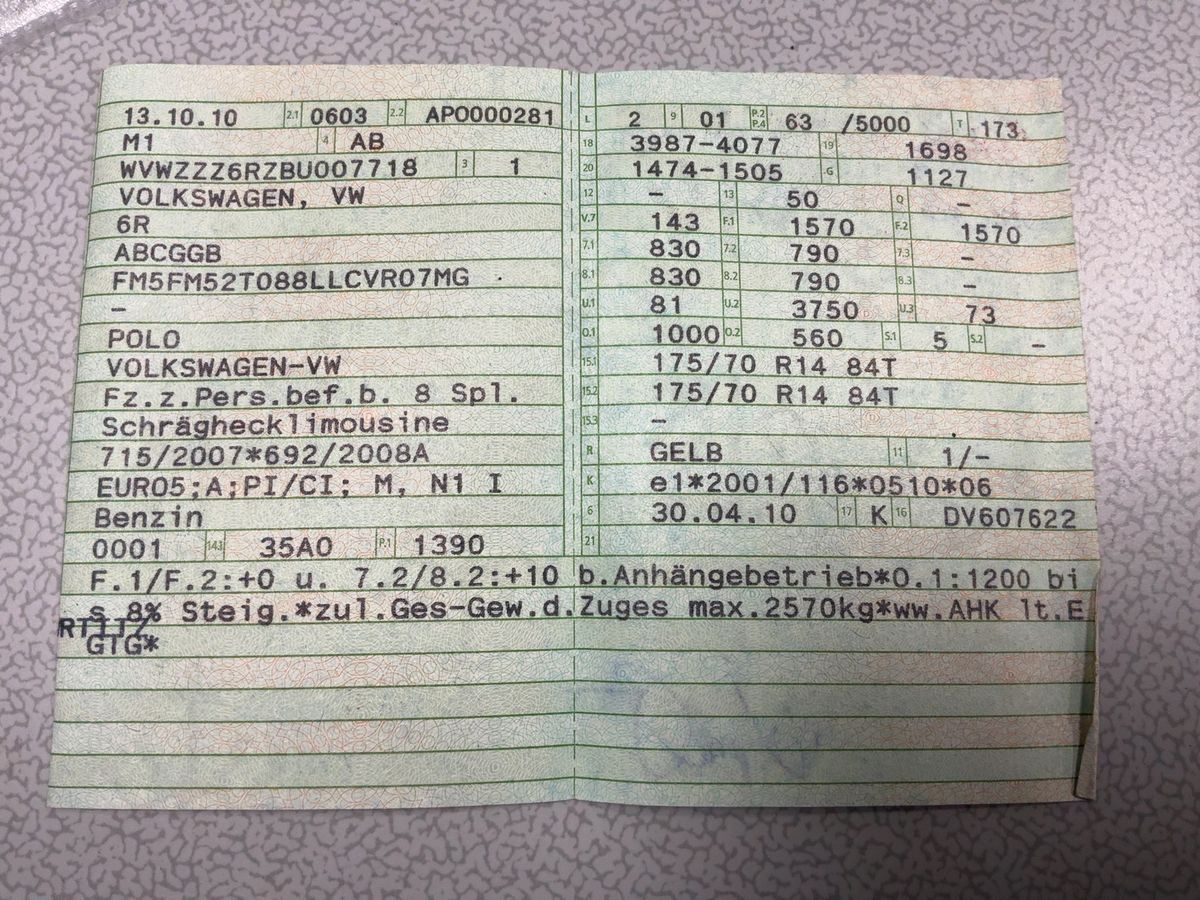 13.10.10 2.1 0603 2.2 AP0000281
M1 4 AB
WVWZZZ6RZBU007718 3 1
VOLKSWAGEN, VW
6R
ABCGGB
FM5FM52T088LLCVR07MG
–
POLO
VOLKSWAGEN-VW
Fz.z.Pers.bef.b. 8 Spl.
Schräghecklimousine
715/2007*692/2008A
EURO5;A;PI/CI; M, N1 I
Benzin
0001 14.1 35A0 P.1 1390
L 2 9 01 P.2 P.4 63 /5000 T 173
18 3987-4077 19 1698
20 1474-1505 G 1127
12 – 13 50 Q –
V.7 143 F.1 1570 F.2 1570
7.1 830 7.2 790 7.3 –
8.1 830 8.2 790 8.3 –
U.1 81 U.2 3750 U.3 73
O.1 1000 O.2 560 S.1 5 S.2 –
15.1 175/70 R14 84T
15.2 175/70 R14 84T
15.3 –
R GELB 11 1/-
K e1*2001/116*0510*06
6 30.04.10 17 K 16 DV607622
21
F.1/F.2:+0 u. 7.2/8.2:+10 b.Anhängebetrieb*O.1:1200 bi
s 8% Steig.*zul.Ges-Gew.d.Zuges max.2570kg*ww.AHK lt.E
GTG*